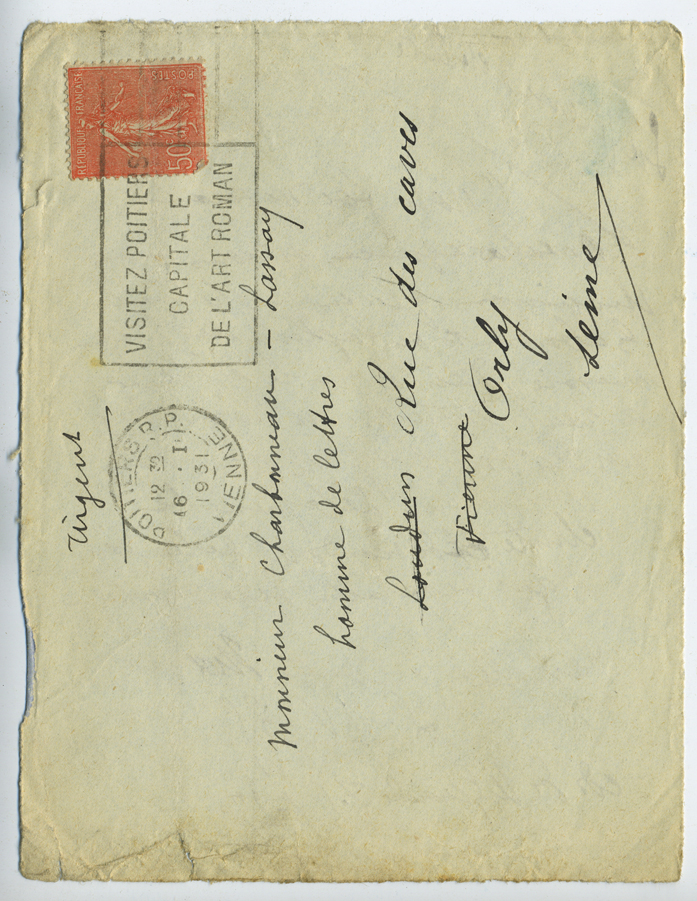 Urgent
POITIERS R.P.
12 30
16 . I
1931
VIENNE
VISITEZ POITIERS
CAPITALE
DE L'ART ROMAN
REPUBLIQUE FRANÇAISE
POSTES
50c
Monsieur Charbonneau - Lassay
homme de lettres
Loudun Rue des caves
Vienne Orly
Seine